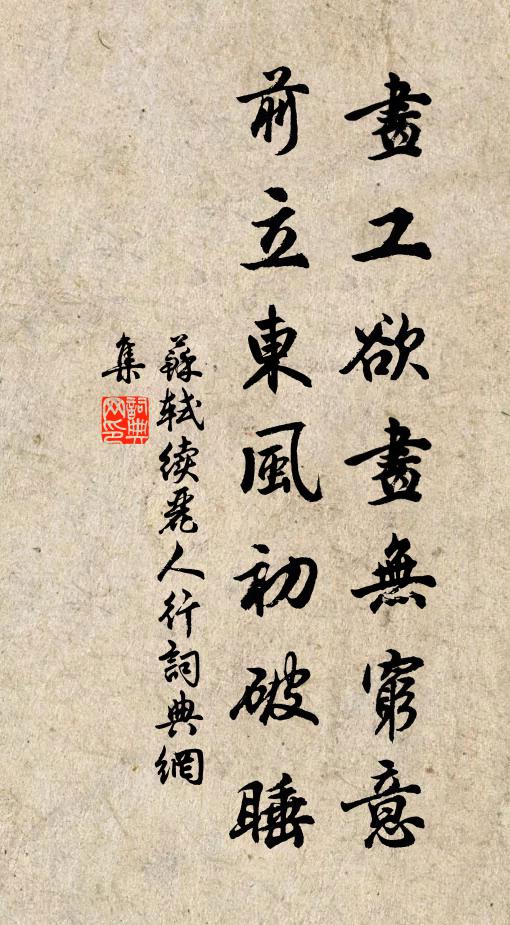 畫工欲畫無窮意
前立東風初破睡
蘇軾续麗人行詞典網
集
詞典网印